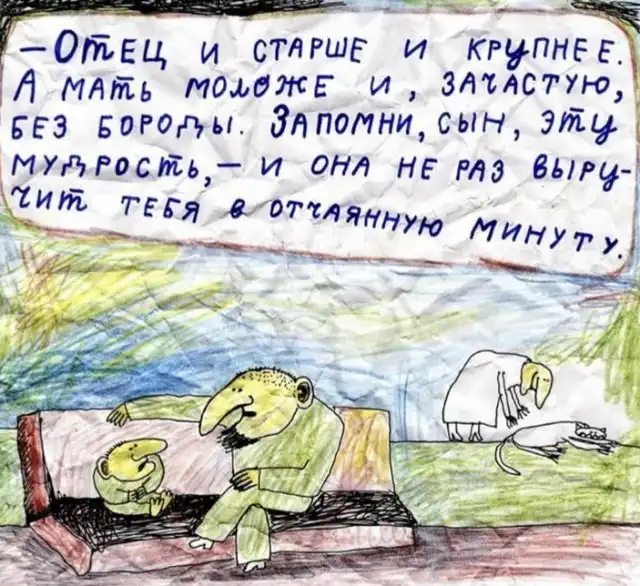 — Отец и старше и крупнее.
А мать моложе и, зачастую,
без бороды. Запомни, сын, эту
мудрость, — и она не раз выру-
чит тебя в отчаянную минуту.